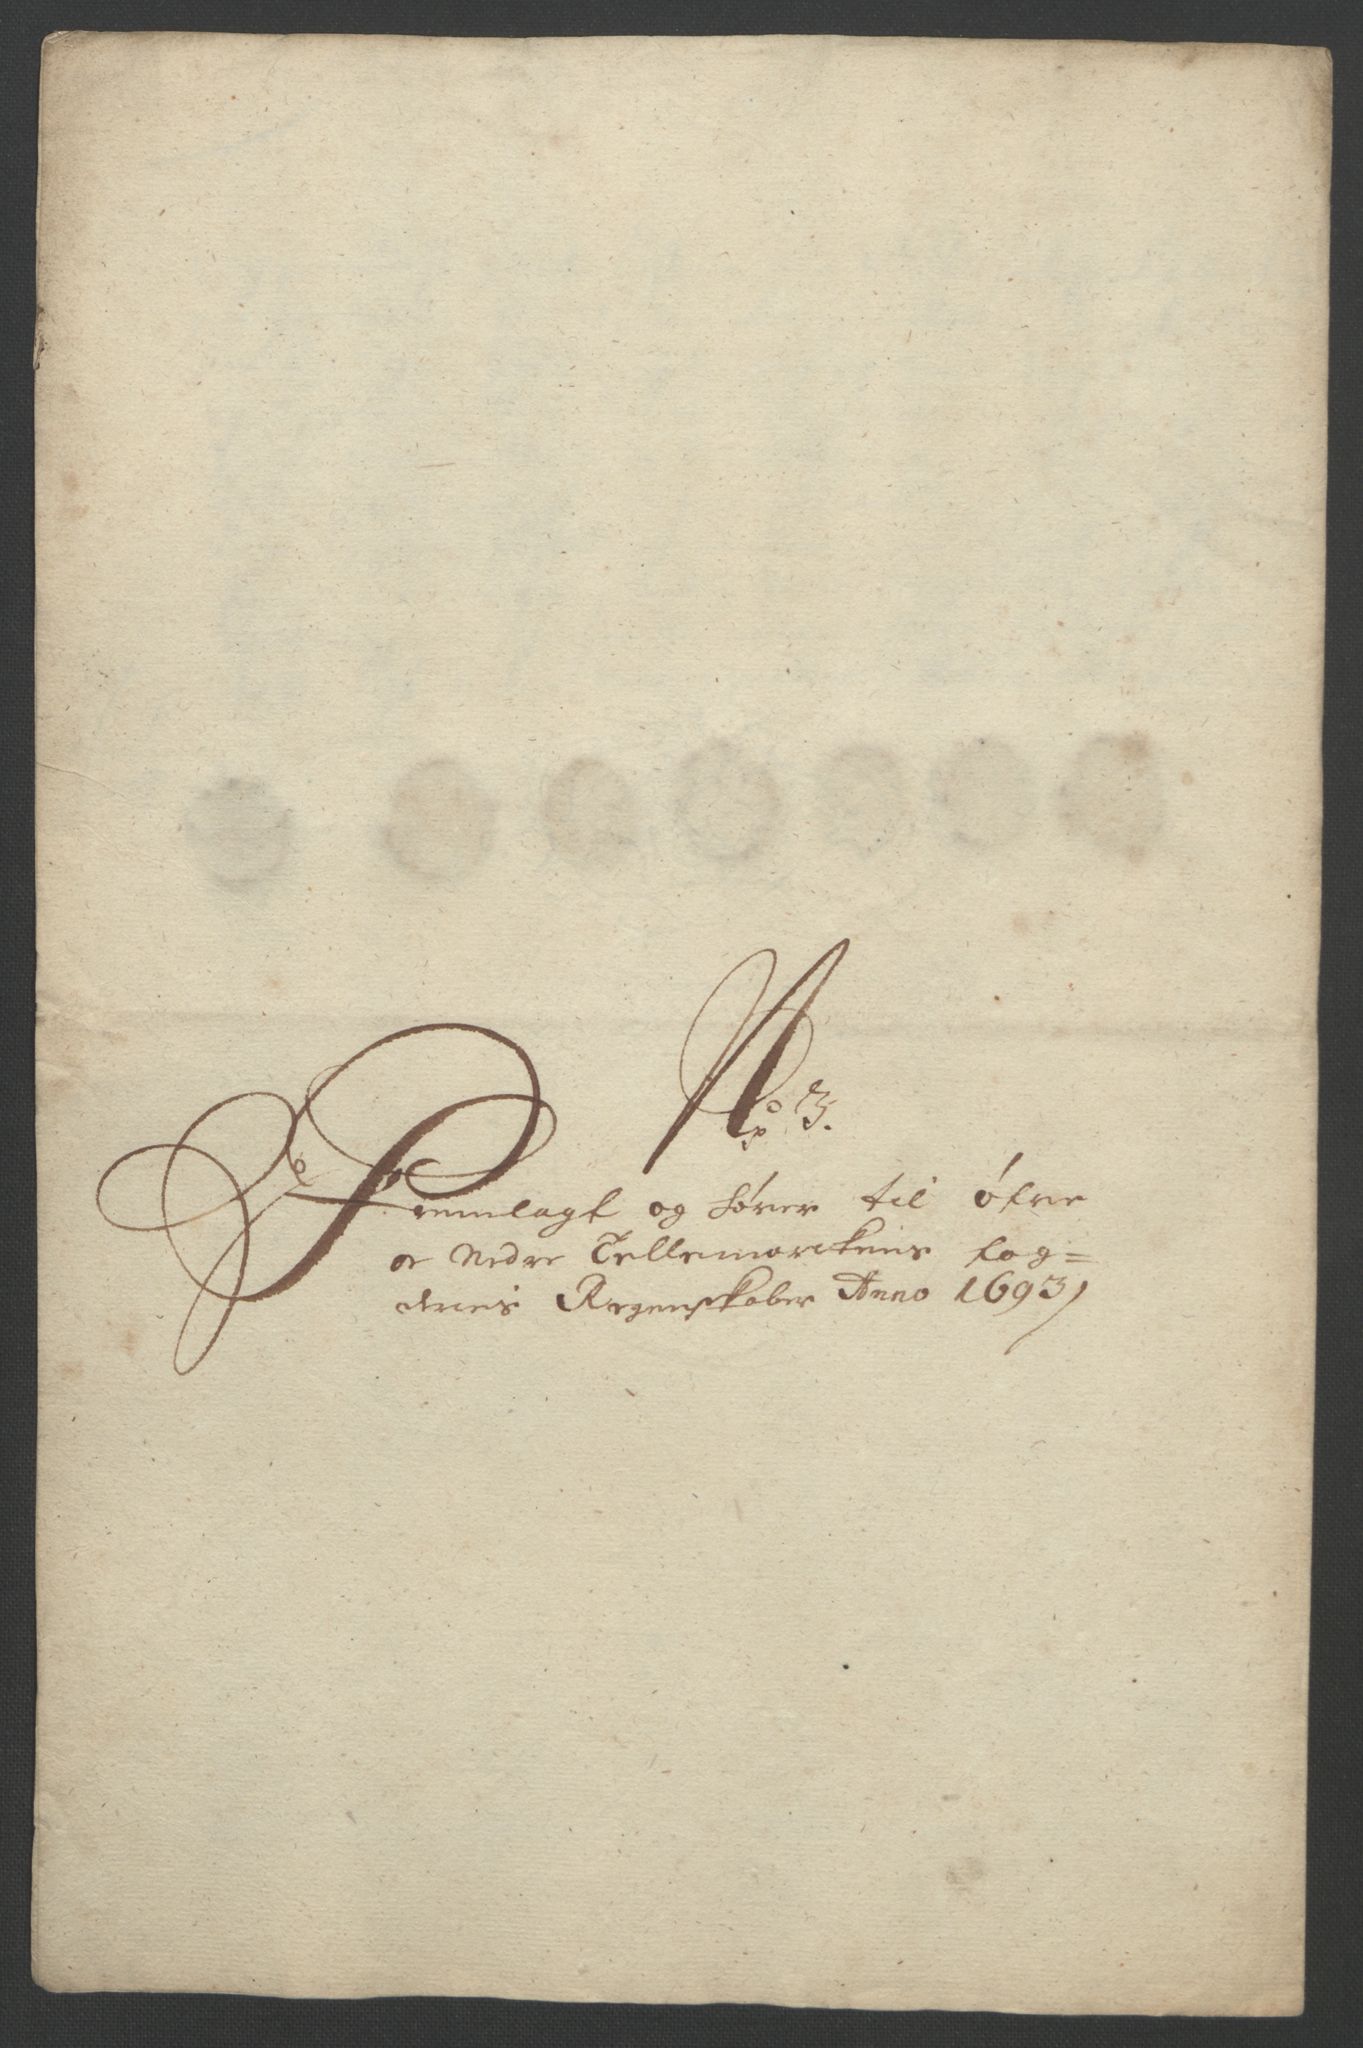 No 3.
Fremlagt og hører til Øfre
oc Nedre Tellemarckens fog=
deries Regenskaber Anno 1693